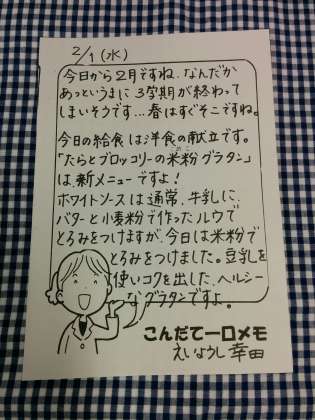 2/1(水)
今日から2月ですね。なんだか
あっというまに3学期が終わって
しまいそうです…春はすぐそこですね。
今日の給食は洋食の献立です。
「たらとブロッコリーの米粉グラタン」
は新メニューですよ!
ホワイトソースは通常、牛乳に、
バターと小麦粉で作ったルウで
とろみをつけますが、今日は米粉で
とろみをつけました。豆乳を
使いコクを出した、ヘルシー
なグラタンですよ。
こんだて一口メモ
えいようし 幸田